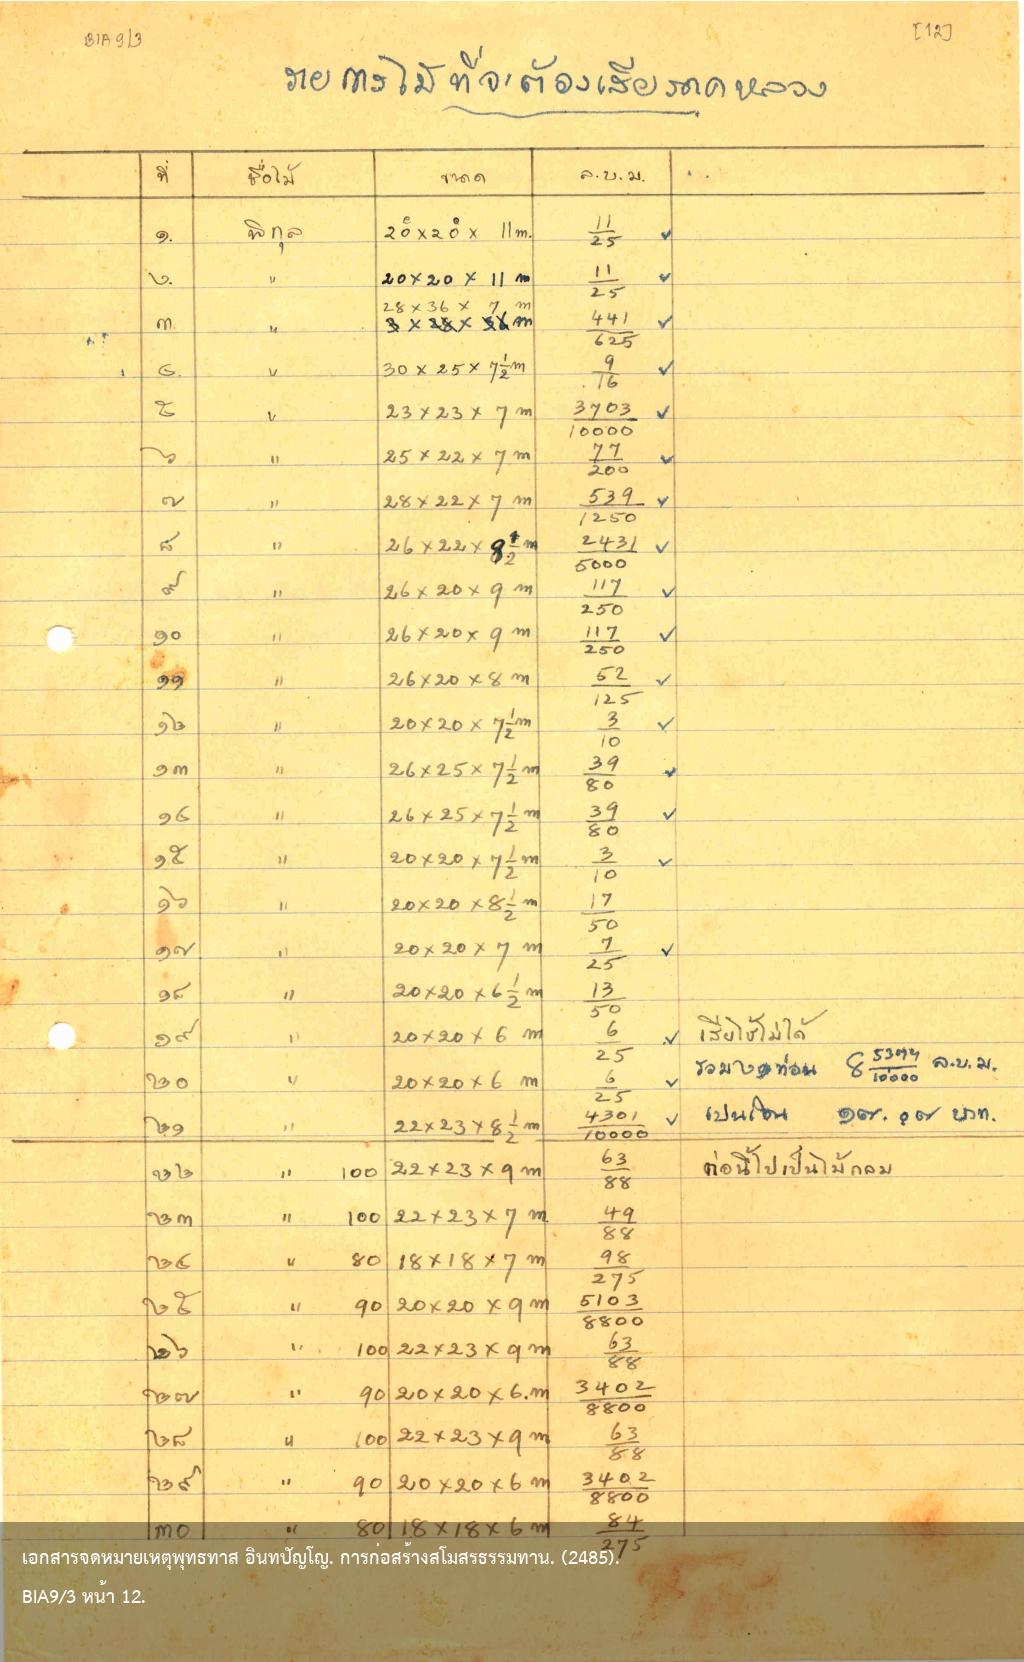 BIA 9/3 [12]
รายการไม้ที่จะต้องเสียภาคหลวง
ที่ ชื่อไม้ ขนาด ล.บ.ม.
๑. พิกุล 20 × 20 × 11 m. 11/25 ✓
๒. " 20 × 20 × 11 m 11/25 ✓
28 × 36 × 7 m
๓. " 441/625 ✓
๔. " 30 × 25 × 7 1/2 m 9/16 ✓
๕ " 23 × 23 × 7 m 3703/10000 ✓
๖ " 25 × 22 × 7 m 77/200 ✓
๗ " 28 × 22 × 7 m 539/1250 ✓
๘ " 26 × 22 × 8 1/2 m 2431/5000 ✓
๙ " 26 × 20 × 9 m 117/250 ✓
๑๐ " 26 × 20 × 9 m 117/250 ✓
๑๑ " 26 × 20 × 8 m 52/125 ✓
๑๒ " 20 × 20 × 7 1/2 m 3/10 ✓
๑๓ " 26 × 25 × 7 1/2 m 39/80 ✓
๑๔ " 26 × 25 × 7 1/2 m 39/80 ✓
๑๕ " 20 × 20 × 7 1/2 m 3/10 ✓
๑๖ " 20 × 20 × 8 1/2 m 17/50
๑๗ " 20 × 20 × 7 m 7/25 ✓
๑๘ " 20 × 20 × 6 1/2 m 13/50
๑๙ " 20 × 20 × 6 m 6/25 ✓ เสียใช้ไม่ได้
รวม ๒๑ ท่อน 8 ล.บ.ม.
๒๐ " 20 × 20 × 6 m 6/25 ✓
๒๑ " 22 × 23 × 8 1/2 m 4301/10000 ✓ เปนเงิน ๑๗.๐๗ บาท.
๒๒ " 100 22 × 23 × 9 m 63/88 ต่อนี้ไปเป็นไม้กลม
๒๓ " 100 22 × 23 × 7 m 49/88
๒๔ " 80 18 × 18 × 7 m 98/275
๒๕ " 90 20 × 20 × 9 m 5103/8800
๒๖ " 100 22 × 23 × 9 m 63/88
๒๗ " 90 20 × 20 × 6. m 3402/8800
๒๘ " 100 22 × 23 × 9 m 63/88
๒๙ " 90 20 × 20 × 6 m 3402/8800
๓๐ " 80 18 × 18 × 6 m 84/275
เอกสารจดหมายเหตุพุทธทาส อินทปัญโญ. การก่อสร้างสโมสรธรรมทาน. (2485).
BIA9/3 หน้า 12.